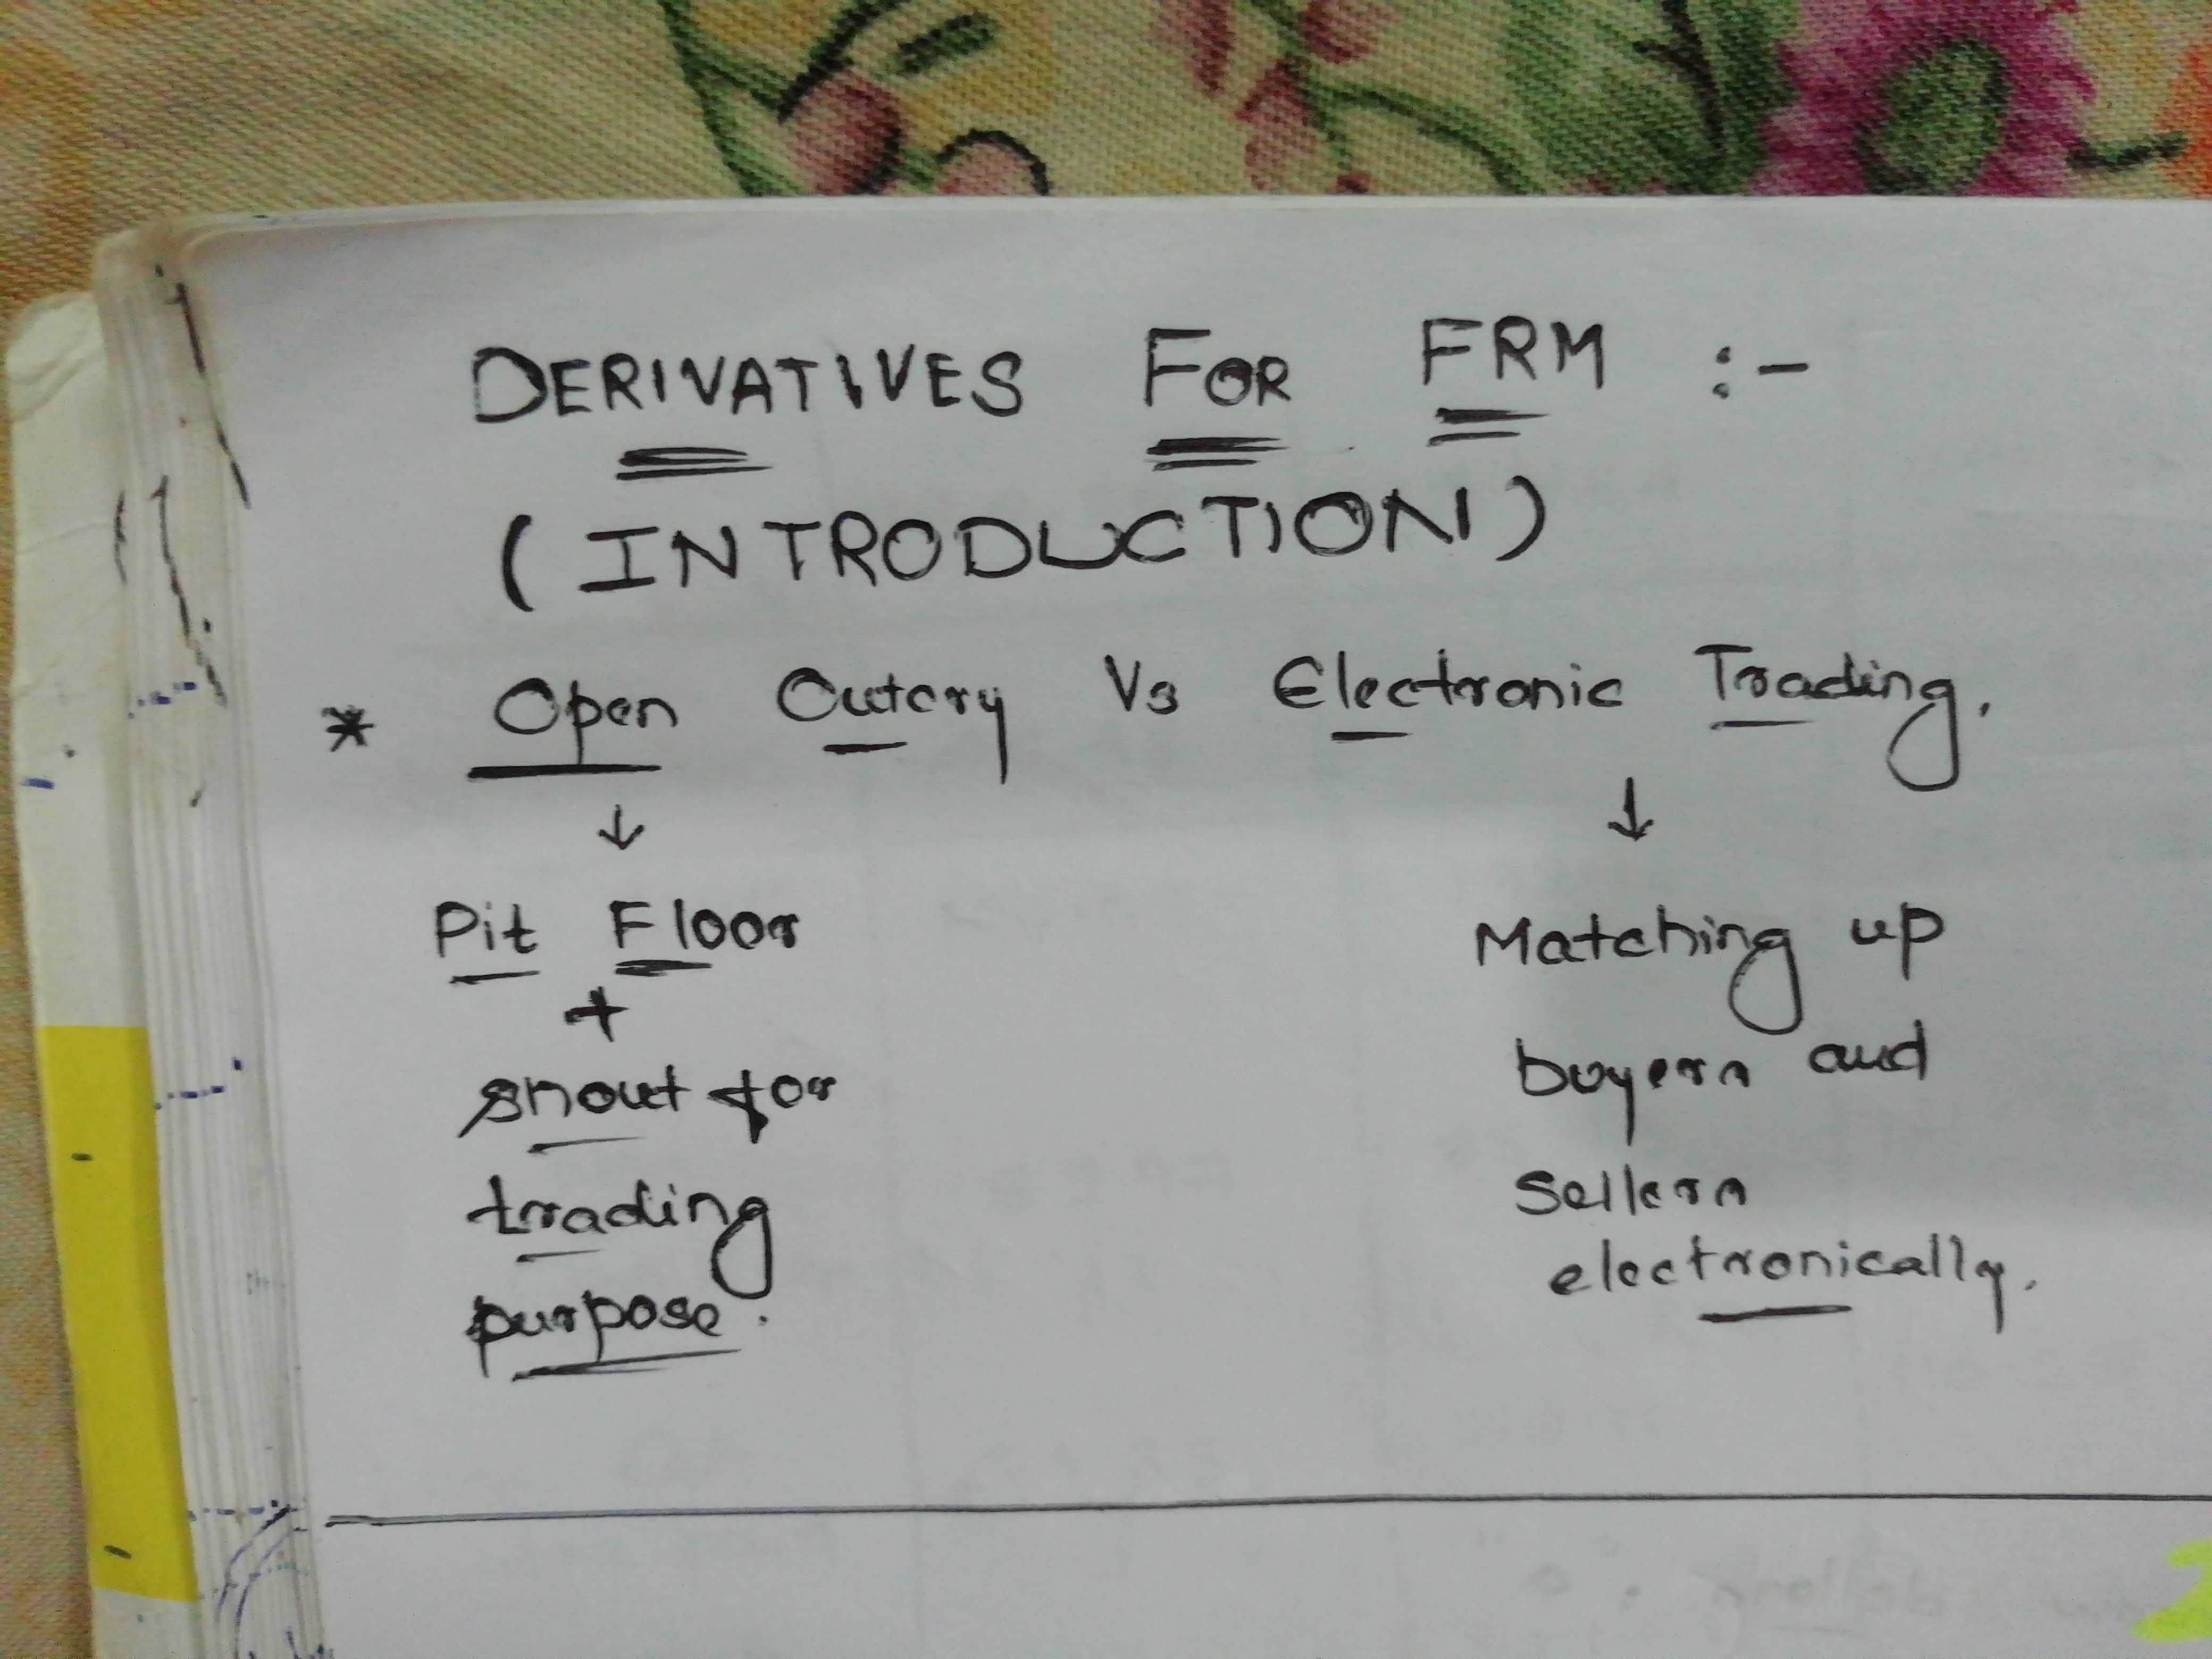 DERIVATIVES FOR FRM :-
(INTRODUCTION)
* Open Outcry Vs Electronic Trading.
↓ ↓
Pit Floor
+
shout for
trading
purpose.
Matching up
buyers and
Sellers
electronically.